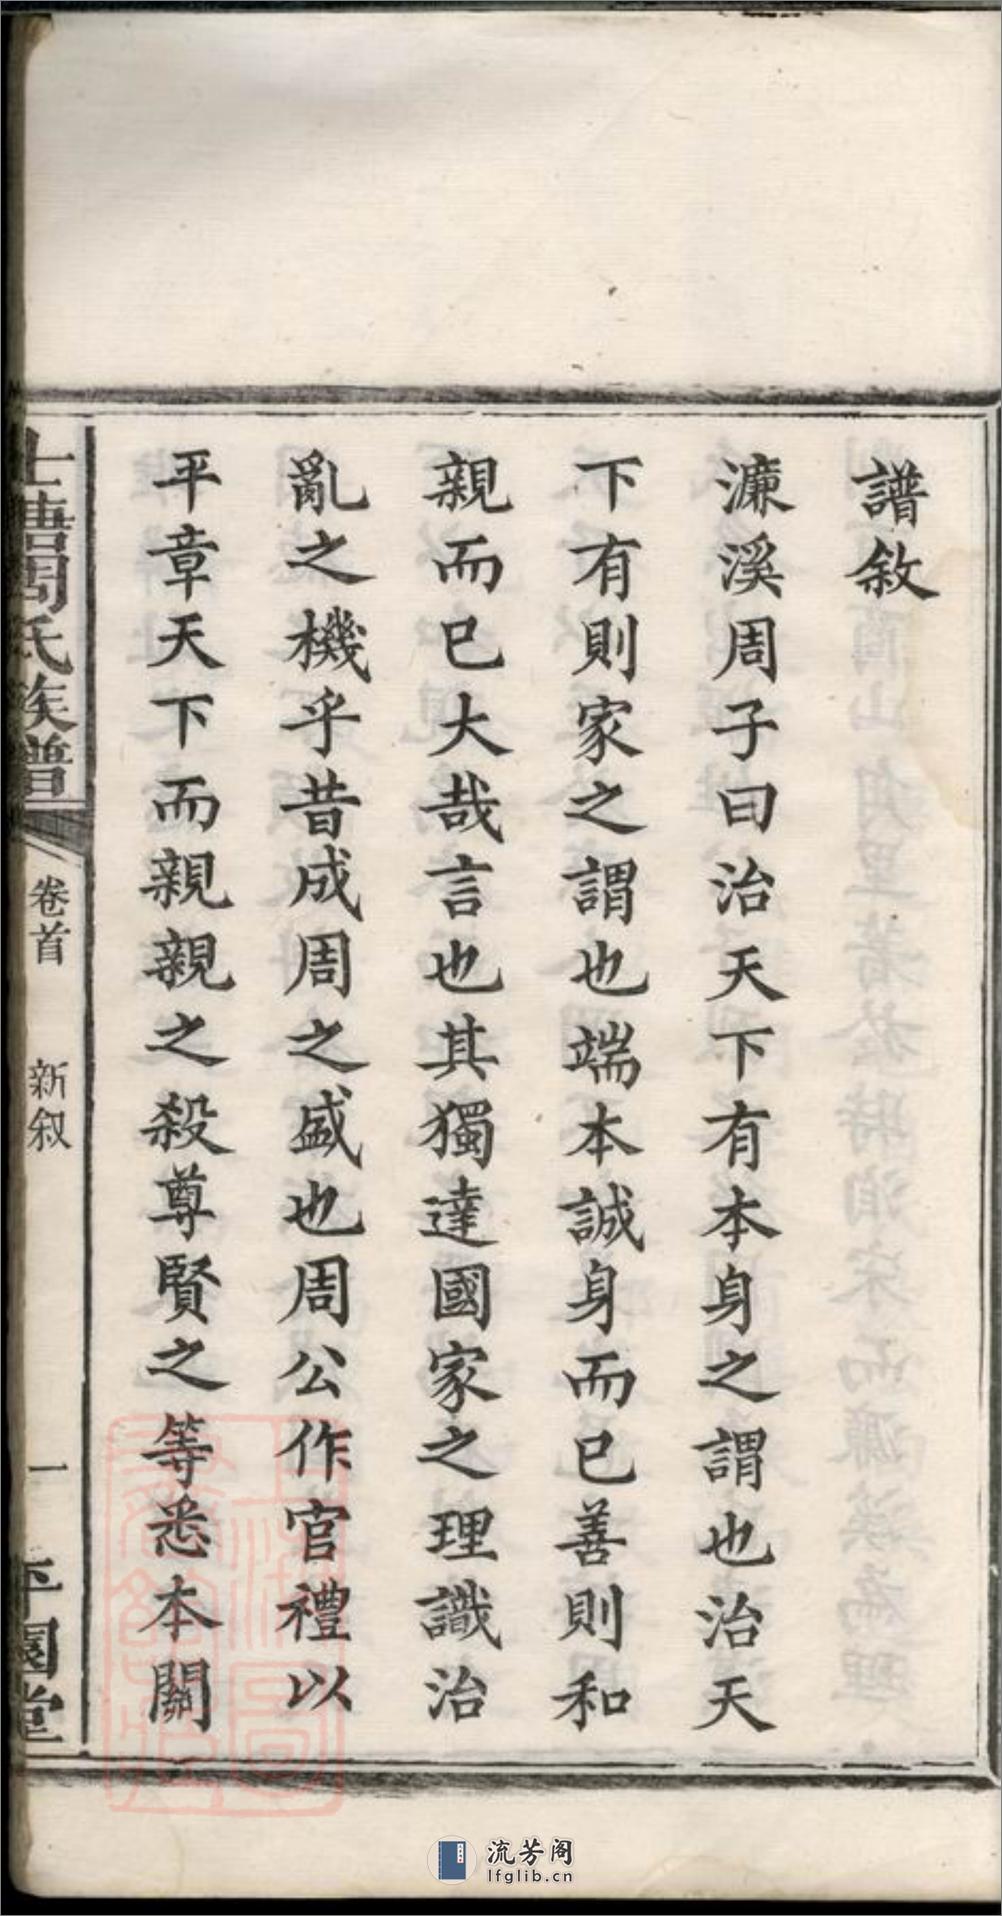 譜敘
濂溪周子曰治天下有本身之謂也治天
下有則家之謂也端本誠身而已善則和
親而已大哉言也其獨達國家之理識治
亂之機乎昔成周之盛也周公作官禮以
平章天下而親親之殺尊賢之等悉本關
七塘周氏族譜
卷首
新叙
一
平園堂
流芳阁
lfglib.cn